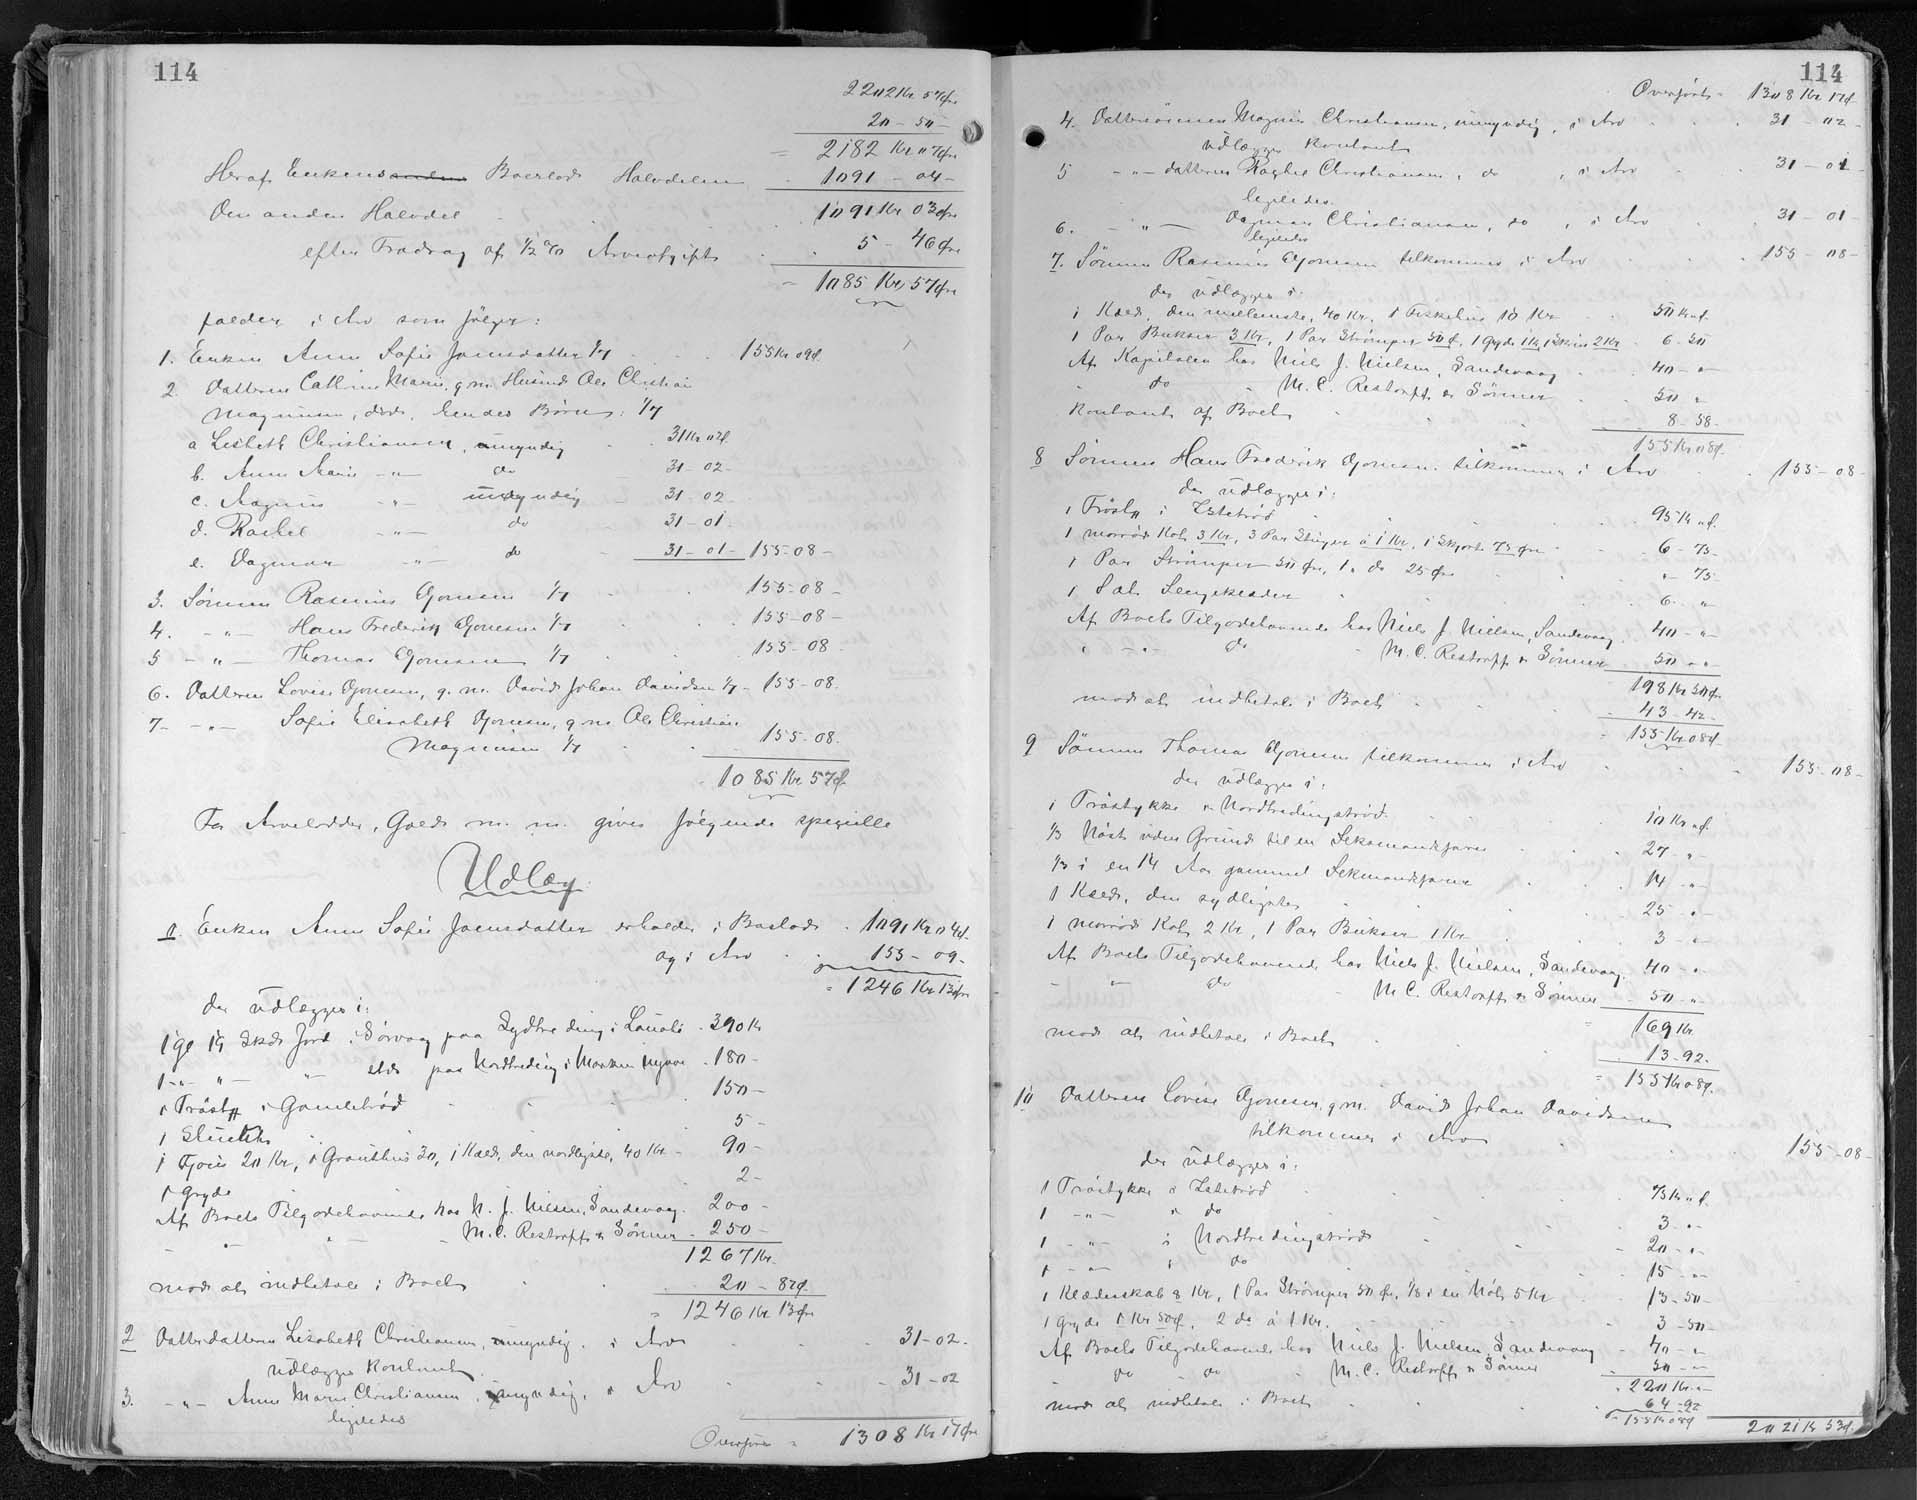 114
2202 Kr. 57 Øre
20 - 50 -
= 2182 Kr. 07 Øre
Heraf Enkens Boeslods Halvdelen - 1091 - 04 -
Den anden Halvdel 1091 Kr. 03 Øre
efter Fradrag af ½ % Arveafgift 5 - 46 Øre
= 1085 Kr. 57 Øre
falder i Arv som følger:
1. Enken Anne Sofie Joensdatter 1/7 155 Kr 09 Ø.
2. Datteren Cathrine Marie, g. m. Husmd. Ole Christian
Magnussen, død, hendes Børn: 1/7
a Lisbeth Christiansen, umyndig 31 Kr 02 Ø.
b. Anna Marie -"- do 31 - 02 -
c. Magnus -"- umyndig 31 - 02 -
d. Rachel -"- do 31 - 01 -
e. Dagmar -"- do 31 - 01 - 155 - 08 -
3. Sønnen Rasmus Joensen 1/7 155 - 08 -
4. -"- Hans Frederik Joensen 1/7 155 - 08 -
5 -"- Thomas Joensen 1/7 155 - 08
6. Datteren Lovise Joensen, g. m. David Johan Davidsen 1/7 - 155 - 08.
7 - -"- Sofie Elisabeth Joensen, g m Ole Christian
Magnussen 1/7 155 - 08.
1085 Kr. 57 Ø
For Arvelodder, Gæld m. m. gives følgende specielle
Udlæg.
1. Enken Anne Sofie Joensdatter erholder i Boslod - 1091 Kr 04 Ø.
og i Arv 155 - 09 -
= 1246 Kr. 13 Øre
der udlægges i:
1 gl 14 Skd Jord i Sørvaag paa Sydtreding i 390 K
1 -"- " - "- paa Nordtreding i Marken - 180 -
1 Trøst# i Gamletrød 150 -
1 5 -
1 20 Kr, 1 Grouthus 30, 1 Kæd, den nordligste, 40 Kr - 90 -
1 Gryde 2 -
Af Boets Tilgodehavende hos N. J. Nielsen, Sandevaag. 200 -
- " - " - M. C. Restorff & Sønner - 250 -
1267 Kr.
mod at indbetale i Boet 20 - 87 Ø.
= 1246 Kr. 13 Øre
2 Datterdatteren Lisabeth Christiansen, umyndig, i Arv 31 - 02 -
udlægges kontant
3. -"- Anna Marie Christiansen, umyndig, i Arv - 31 - 02
ligeledes
Overføres = 1308 Kr 17 Øre
114
Overført - 1308 Kr 17 Ø
4. Dattersønnen Magnus Christiansen, umyndig, i Arv 31 - 02 -
udlægges kontant
5 -"- datteren Rachel Christiansen, do, i Arv 31 - 01 -
ligeledes.
6. -"- Dagmar Christiansen, do, i Arv 31 - 01 -
ligeledes
7. Sønnen Rasmus Joensen tilkommer i Arv 155 - 08 -
der udlægges i:
1 Kæd, den mellemste, 40 Kr. 1 Fiskehus 10 Kr 50 Kr " Ø.
1 Par Bukser 3 Kr, 1 Par Strømper 50 Ø, 1 Gryde 1 Kr, 1 Skrin 2 Kr 6 - 50
Af Kapitalen hos Niels J. Nielsen, Sandevaag 40 - "
do - M. C. Restorff & Sønner 50 "
Kontant af Boet 8 - 58 -
155 Kr 08 Ø.
8 Sønnen Hans Frederik Joensen tilkommer i Arv 155 - 08 -
der udlægges i:
1 Trøst# i 95 Kr " Ø.
1 morrød Kot 3 Kr, 3 Par à 1 Kr, 1 Skjorte 75 Øre 6 - 75 -
1 Par Strømper 50 Øre, 1 do 25 Øre " - 75 -
1 Sæt Sengeklæder 6 - "
Af Boets Tilgodehavende hos Niels J. Nielsen, Sandevaag 40 - " -
" - " - do - M. C. Restorff & Sønner 50 - " -
198 Kr 50 Ø.
mod at indbetale i Boet 43 - 42 -
= 155 Kr 08 Ø.
9 Sønnen Thomas Joensen tilkommer i Arv 155 - 08 -
der udlægges i:
1 Trøstykke i Nordtredingstrød 10 Kr " Ø.
1/3 Nøst uden Grund til en Seksmandsfarer 27 - " -
1/3 i en 14 Aar gammel Seksmandsfarer 14 - " -
1 Kæd, den sydligste 25 - " -
1 morrød Kot 2 Kr, 1 Par Bukser 1 Kr 3 - " -
Af Boets Tilgodehavende hos Niels J. Nielsen, Sandevaag. 40 - "
- " - do - M. C. Restorff & Sønner - 50 - "
169 Kr.
mod at indbetale i Boet 13 - 92 -
= 155 Kr 08 Ø.
10 Datteren Lovise Joensen, g. m. David Johan Davidsen
tilkommer i Arv 155 - 08 -
der udlægges i:
1 Trøstykke i 75 Kr " Ø.
1 -"- i do 3 - " -
1 -"- i Nordtredingstrød 20 - " -
1 -"- i do 15 - " -
1 Klædeskab 8 Kr, 1 Par Strømper 50 Øre, 1/8 i en Nót 5 Kr 13 - 50 -
1 Gryde 1 Kr 50 Ø, 2 do à 1 Kr. 3 - 50 -
Af Boets Tilgodehavende hos Niels J. Nielsen, Sandevaag 40 - " -
- do - do - M. C. Restorff & Sønner 50 - " -
220 Kr " -
mod at indbetale i Boet 64 - 92
= 155 Kr 08 Ø
2021 Kr 53 Ø.